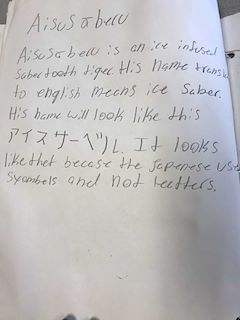 Aisusāberu
Aisusāberu is an ice infused
Saber tooth tiger. His Name transl
to english means ice Saber.
His name will look like this
アイスサーベル. It looks
like that becase the Japanese use
Syombels and not leetters.